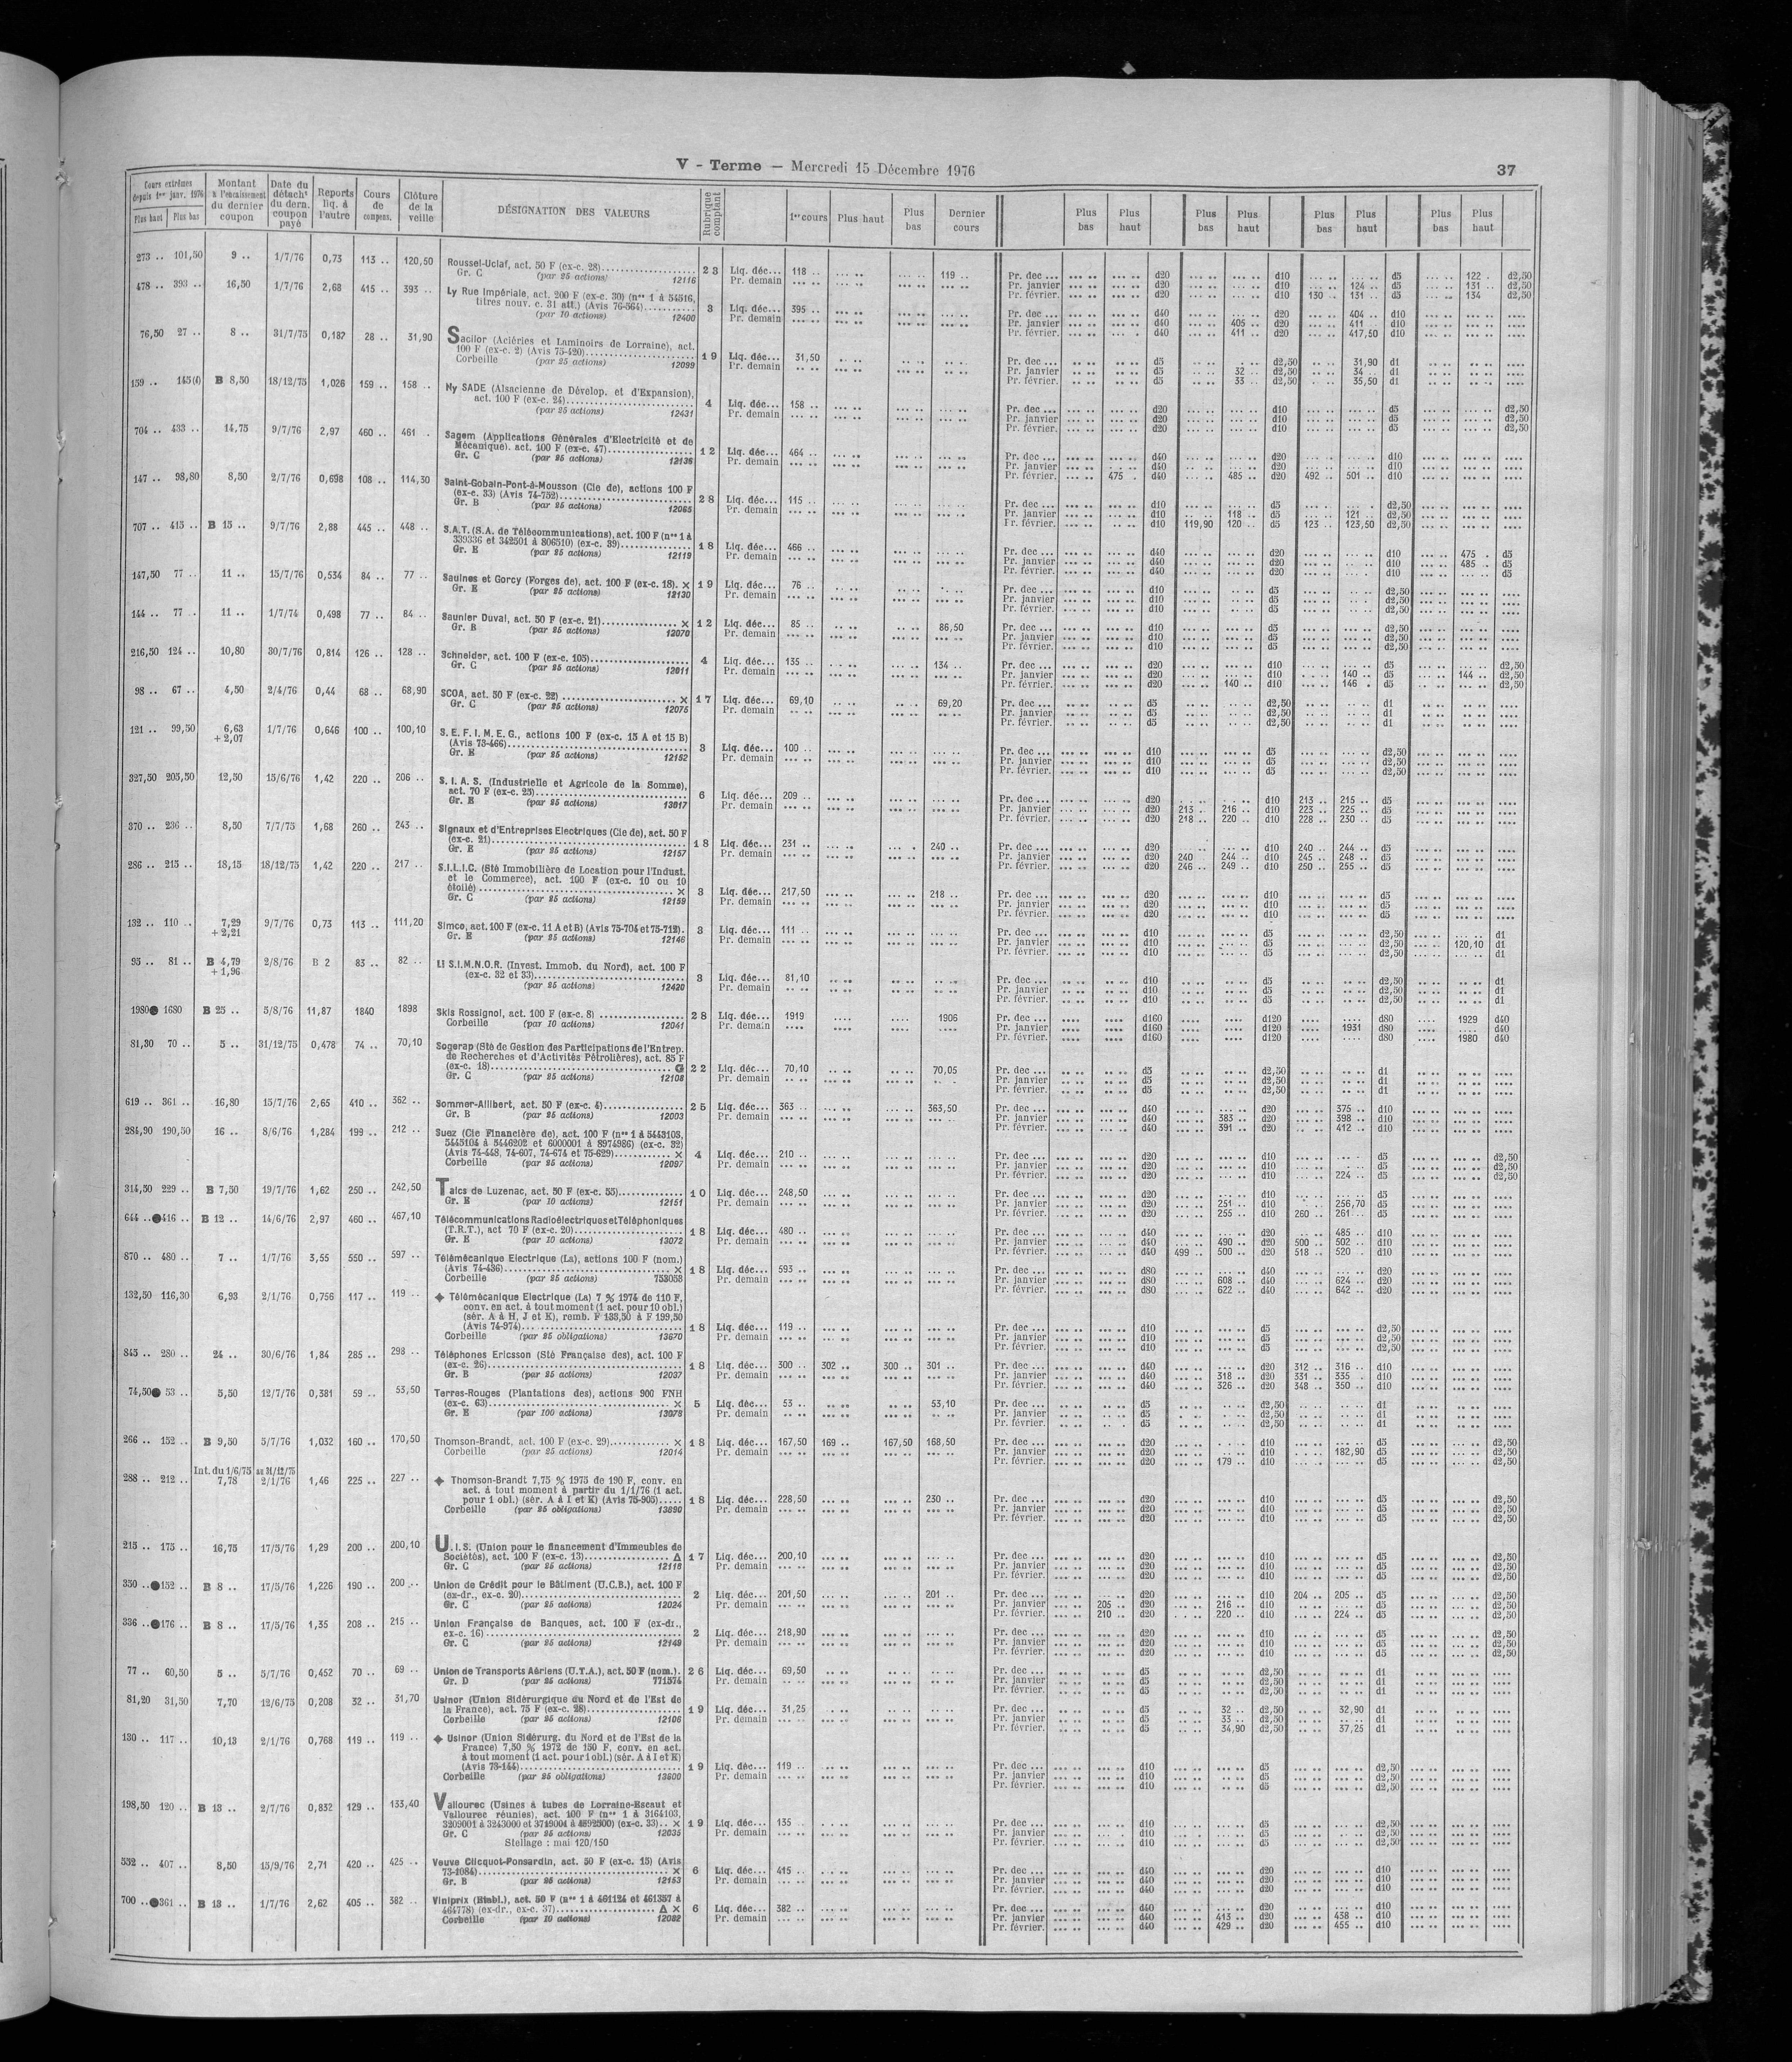 V - Terme — Mercredi 15 Décembre 1976
37
Cours extrêmes depuis 1er janv. 1976 Plus haut Plus bas
Montant à l'encaissement du dernier coupon
Date du détacht du dern. coupon payé
Reports liq. à l'autre
Cours de compens.
Clôture de la veille
DÉSIGNATION DES VALEURS
Rubrique comptant
1er cours Plus haut Plus bas Dernier cours
Plus bas Plus haut Plus bas Plus haut Plus bas Plus haut Plus bas Plus haut
273 .. 101,50 9 .. 1/7/76 0,73 113 .. 120,50 Roussel-Uclaf, act. 50 F (ex-c. 28)
Gr. C (par 25 actions) 12116 23 Liq. déc... 118 .. 119 .. Pr. dec ... d20 d10 d5 122 . d2,50
Pr. demain Pr. janvier d20 d10 124 .. d5 131 .. d2,50
Pr. février. d20 d10 130 .. 131 .. d5 134 d2,50
478 .. 393 .. 16,50 1/7/76 2,68 415 .. 393 .. Ly Rue Impériale, act. 200 F (ex-c. 30) (nos 1 à 54516,
titres nouv. c. 31 att.) (Avis 76-564)
(par 10 actions) 12400 3 Liq. déc... 395 .. Pr. dec ... d40 d20 404 .. d10
Pr. demain Pr. janvier d40 405 .. d20 411 .. d10
Pr. février. d40 411 .. d20 417,50 d10
76,50 27 .. 8 .. 31/7/75 0,187 28 .. 31,90 Sacilor (Aciéries et Laminoirs de Lorraine), act.
100 F (ex-c. 2) (Avis 75-420)
Corbeille (par 25 actions) 12099 19 Liq. déc... 31,50 Pr. dec ... d5 d2,50 31,90 d1
Pr. demain Pr. janvier d5 32 .. d2,50 34 .. d1
Pr. février. d5 33 .. d2,50 35,50 d1
159 .. 145(l) B 8,50 18/12/75 1,026 159 .. 158 .. Ny SADE (Alsacienne de Dévelop. et d'Expansion),
act. 100 F (ex-c. 24)
(par 25 actions) 12431 4 Liq. déc... 158 .. Pr. dec ... d20 d10 d5 d2,50
Pr. demain Pr. janvier d20 d10 d5 d2,50
Pr. février. d20 d10 d5 d2,50
704 .. 433 .. 14,75 9/7/76 2,97 460 .. 461 . Sagem (Applications Générales d'Electricité et de
Mécanique). act. 100 F (ex-c. 47)
Gr. C (par 25 actions) 12136 12 Liq. déc... 464 .. Pr. dec ... d40 d20 d10
Pr. demain Pr. janvier d40 d20 d10
Pr. février. 475 . d40 485 .. d20 492 .. 501 .. d10
147 .. 98,80 8,50 2/7/76 0,698 108 .. 114,30 Saint-Gobain-Pont-à-Mousson (Cie de), actions 100 F
(ex-c. 33) (Avis 74-752)
Gr. B (par 25 actions) 12065 28 Liq. déc... 115 .. Pr. dec ... d10 d5 d2,50
Pr. demain Pr. janvier d10 118 .. d5 121 .. d2,50
Pr. février. d10 119,90 120 .. d5 123 .. 123,50 d2,50
707 .. 415 .. B 15 .. 9/7/76 2,88 445 .. 448 .. S.A.T. (S.A. de Télécommunications), act. 100 F (nos 1 à
339336 et 342501 à 806510) (ex-c. 39)
Gr. E (par 25 actions) 12119 18 Liq. déc... 466 .. Pr. dec ... d40 d20 d10 475 . d5
Pr. demain Pr. janvier d40 d20 d10 485 .. d5
Pr. février. d40 d20 d10 d5
147,50 77 .. 11 .. 15/7/76 0,534 84 .. 77 .. Saulnes et Gorcy (Forges de), act. 100 F (ex-c. 18). ×
Gr. E (par 25 actions) 12130 19 Liq. déc... 76 .. Pr. dec ... d10 d5 d2,50
Pr. demain Pr. janvier d10 d5 d2,50
Pr. février. d10 d5 d2,50
144 .. 77 .. 11 .. 1/7/74 0,498 77 .. 84 .. Saunier Duval, act. 50 F (ex-c. 21) ×
Gr. B (par 25 actions) 12070 12 Liq. déc... 85 .. 86,50 Pr. dec ... d10 d5 d2,50
Pr. demain Pr. janvier d10 d5 d2,50
Pr. février. d10 d5 d2,50
216,50 124 .. 10,80 30/7/76 0,814 126 .. 128 .. Schneider, act. 100 F (ex-c. 105)
Gr. C (par 25 actions) 12011 4 Liq. déc... 135 .. 134 .. Pr. dec ... d20 d10 d5 d2,50
Pr. demain Pr. janvier d20 d10 140 .. d5 144 .. d2,50
Pr. février. d20 140 .. d10 146 . d5 d2,50
98 .. 67 .. 4,50 2/4/76 0,44 68 .. 68,90 SCOA, act. 50 F (ex-c. 22) ×
Gr. C (par 25 actions) 12075 17 Liq. déc... 69,10 69,20 Pr. dec ... d5 d2,50 d1
Pr. demain Pr. janvier d5 d2,50 d1
Pr. février. d5 d2,50 d1
121 .. 99,50 6,63 + 2,07 1/7/76 0,646 100 .. 100,10 S. E. F. I. M. E. G., actions 100 F (ex-c. 15 A et 15 B)
(Avis 73-466)
Gr. E (par 25 actions) 12152 3 Liq. déc... 100 .. Pr. dec ... d10 d5 d2,50
Pr. demain Pr. janvier d10 d5 d2,50
Pr. février. d10 d5 d2,50
327,50 205,50 12,50 15/6/76 1,42 220 .. 206 .. S. I. A. S. (Industrielle et Agricole de la Somme),
act. 70 F (ex-c. 25)
Gr. B (par 25 actions) 13017 6 Liq. déc... 209 .. Pr. dec ... d20 d10 213 .. 215 .. d5
Pr. demain Pr. janvier d20 213 .. 216 .. d10 223 .. 225 .. d5
Pr. février. d20 218 .. 220 .. d10 228 .. 230 .. d5
370 .. 236 .. 8,50 7/7/75 1,68 260 .. 243 .. Signaux et d'Entreprises Electriques (Cie de), act. 50 F
(ex-c. 21)
Gr. E (par 25 actions) 12157 18 Liq. déc... 231 .. 240 .. Pr. dec ... d20 d10 240 .. 244 .. d5
Pr. demain Pr. janvier d20 240 244 .. d10 245 .. 248 .. d5
Pr. février. d20 246 .. 249 .. d10 250 .. 255 .. d5
286 .. 215 .. 18,15 18/12/75 1,42 220 .. 217 .. S.I.L.I.C. (Sté Immobilière de Location pour l'Indust.
et le Commerce), act. 100 F (ex-c. 10 ou 10
étoilé) ×
Gr. C (par 25 actions) 12159 3 Liq. déc... 217,50 218 .. Pr. dec ... d20 d10 d5
Pr. demain Pr. janvier d20 d10 d5
Pr. février. d20 d10 d5
132 .. 110 .. 7,29 + 2,21 9/7/76 0,73 113 .. 111,20 Simco, act. 100 F (ex-c. 11 A et B) (Avis 75-704 et 75-712).
Gr. E (par 25 actions) 12146 3 Liq. déc... 111 .. Pr. dec ... d10 d5 d2,50 d1
Pr. demain Pr. janvier d10 d5 d2,50 120,10 d1
Pr. février. d10 d5 d2,50 d1
95 .. 81 .. B 4,79 + 1,96 2/8/76 B 2 83 .. 82 .. Li S.I.M.N.O.R. (Invest. Immob. du Nord), act. 100 F
(ex-c. 32 et 33)
(par 25 actions) 12420 3 Liq. déc... 81,10 Pr. dec ... d10 d5 d2,50 d1
Pr. demain Pr. janvier d10 d5 d2,50 d1
Pr. février. d10 d5 d2,50 d1
1980● 1680 B 25 .. 5/8/76 11,87 1840 1898 Skis Rossignol, act. 100 F (ex-c. 8)
Corbeille (par 10 actions) 12041 28 Liq. déc... 1919 1906 Pr. dec ... d160 d120 d80 1929 d40
Pr. demain Pr. janvier d160 d120 1931 d80 d40
Pr. février. d160 d120 d80 1980 d40
81,30 70 .. 5 .. 31/12/75 0,478 74 .. 70,10 Sogerap (Sté de Gestion des Participations de l'Entrep.
de Recherches et d'Activités Pétrolières), act. 85 F
(ex-c. 18) G
Gr. C (par 25 actions) 12108 22 Liq. déc... 70,10 70,05 Pr. dec ... d5 d2,50 d1
Pr. demain Pr. janvier d5 d2,50 d1
Pr. février. d5 d2,50 d1
619 .. 361 .. 16,80 15/7/76 2,65 410 .. 362 .. Sommer-Allibert, act. 50 F (ex-c. 4)
Gr. B (par 25 actions) 12003 25 Liq. déc... 363 .. 363,50 Pr. dec ... d40 d20 375 .. d10
Pr. demain Pr. janvier d40 383 .. d20 398 .. d10
Pr. février. d40 391 .. d20 412 .. d10
284,90 190,50 16 .. 8/6/76 1,284 199 .. 212 .. Suez (Cie Financière de), act. 100 F (nos 1 à 5443103,
5445104 à 5446202 et 6000001 à 8974986) (ex-c. 32)
(Avis 74-448, 74-607, 74-674 et 75-629) ×
Corbeille (par 25 actions) 12097 4 Liq. déc... 210 .. Pr. dec ... d20 d10 d5 d2,50
Pr. demain Pr. janvier d20 d10 d5 d2,50
Pr. février. d20 d10 224 .. d5 d2,50
314,50 229 .. B 7,50 19/7/76 1,62 250 .. 242,50 Talcs de Luzenac, act. 50 F (ex-c. 55)
Gr. E (par 10 actions) 12151 10 Liq. déc... 248,50 Pr. dec ... d20 d10 d5
Pr. demain Pr. janvier d20 251 .. d10 256,70 d5
Pr. février. d20 255 .. d10 260 .. 261 .. d5
644 ..●416 .. B 12 .. 14/6/76 2,97 460 .. 467,10 Télécommunications Radioélectriques et Téléphoniques
(T.R.T.), act 70 F (ex-c. 20)
Gr. E (par 10 actions) 13072 18 Liq. déc... 480 .. Pr. dec ... d40 d20 485 .. d10
Pr. demain Pr. janvier d40 490 .. d20 500 .. 502 .. d10
Pr. février. d40 499 .. 500 .. d20 518 .. 520 .. d10
870 .. 480 .. 7 .. 1/7/76 3,55 550 .. 597 .. Télémécanique Electrique (La), actions 100 F (nom.)
(Avis 74-436) ×
Corbeille (par 25 actions) 753058 18 Liq. déc... 593 .. Pr. dec ... d80 d40 d20
Pr. demain Pr. janvier d80 608 .. d40 624 .. d20
Pr. février. d80 622 .. d40 642 .. d20
132,50 116,30 6,93 2/1/76 0,756 117 .. 119 .. ◆ Télémécanique Electrique (La) 7 % 1974 de 110 F,
conv. en act. à tout moment (1 act. pour 10 obl.)
(sér. A à H, J et K), remb. F 133,50 à F 199,50
(Avis 74-974)
Corbeille (par 25 obligations) 13670 18 Liq. déc... 119 .. Pr. dec ... d10 d5 d2,50
Pr. demain Pr. janvier d10 d5 d2,50
Pr. février. d10 d5 d2,50
845 .. 280 .. 24 .. 30/6/76 1,84 285 .. 298 .. Téléphones Ericsson (Sté Française des), act. 100 F
(ex-c. 26)
Gr. B (par 25 actions) 12037 18 Liq. déc... 300 .. 302 .. 300 .. 301 .. Pr. dec ... d40 d20 312 .. 316 .. d10
Pr. demain Pr. janvier d40 318 .. d20 331 .. 335 .. d10
Pr. février. d40 326 .. d20 348 .. 350 .. d10
74,50● 53 .. 5,50 12/7/76 0,381 59 .. 53,50 Terres-Rouges (Plantations des), actions 900 FNH
(ex-c. 63) ×
Gr. E (par 100 actions) 13078 5 Liq. déc... 53 .. 53,10 Pr. dec ... d5 d2,50 d1
Pr. demain Pr. janvier d5 d2,50 d1
Pr. février. d5 d2,50 d1
266 .. 152 .. B 9,50 5/7/76 1,032 160 .. 170,50 Thomson-Brandt, act. 100 F (ex-c. 29) ×
Corbeille (par 25 actions) 12014 18 Liq. déc... 167,50 169 .. 167,50 168,50 Pr. dec ... d20 d10 d5 d2,50
Pr. demain Pr. janvier d20 d10 182,90 d5 d2,50
Pr. février. d20 179 .. d10 d5 d2,50
Int. du 1/6/75 au 31/12/75
288 .. 212 .. 7,78 2/1/76 1,46 225 .. 227 .. ◆ Thomson-Brandt 7,75 % 1975 de 190 F, conv. en
act. à tout moment à partir du 1/1/76 (1 act.
pour 1 obl.) (sér. A à I et K) (Avis 75-905)
Corbeille (par 25 obligations) 13690 18 Liq. déc... 228,50 230 .. Pr. dec ... d20 d10 d5 d2,50
Pr. demain Pr. janvier d20 d10 d5 d2,50
Pr. février. d20 d10 d5 d2,50
215 .. 175 .. 16,75 17/5/76 1,29 200 .. 200,10 U.I.S. (Union pour le financement d'Immeubles de
Sociétés), act. 100 F (ex-c. 13) Δ
Gr. C (par 25 actions) 12118 17 Liq. déc... 200,10 Pr. dec ... d20 d10 d5 d2,50
Pr. demain Pr. janvier d20 d10 d5 d2,50
Pr. février. d20 d10 d5 d2,50
350 ..●152 .. B 8 .. 17/5/76 1,226 190 .. 200 .. Union de Crédit pour le Bâtiment (U.C.B.), act. 100 F
(ex-dr., ex-c. 20)
Gr. C (par 25 actions) 12024 2 Liq. déc... 201,50 201 .. Pr. dec ... d20 d10 204 .. 205 .. d5 d2,50
Pr. demain Pr. janvier 205 .. d20 216 .. d10 d5 d2,50
Pr. février. 210 .. d20 220 .. d10 224 .. d5 d2,50
336 ..●176 .. B 8 .. 17/5/76 1,35 208 .. 215 .. Union Française de Banques, act. 100 F (ex-dr.,
ex-c. 16)
Gr. C (par 25 actions) 12149 2 Liq. déc... 218,90 Pr. dec ... d20 d10 d5 d2,50
Pr. demain Pr. janvier d20 d10 d5 d2,50
Pr. février. d20 d10 d5 d2,50
77 .. 60,50 5 .. 5/7/76 0,452 70 .. 69 .. Union de Transports Aériens (U.T.A.), act. 50 F (nom.).
Gr. D (par 25 actions) 771574 26 Liq. déc... 69,50 Pr. dec ... d5 d2,50 d1
Pr. demain Pr. janvier d5 d2,50 d1
Pr. février. d5 d2,50 d1
81,20 31,50 7,70 12/6/75 0,208 32 .. 31,70 Usinor (Union Sidérurgique du Nord et de l'Est de
la France), act. 75 F (ex-c. 28)
Corbeille (par 25 actions) 12106 19 Liq. déc... 31,25 Pr. dec ... d5 32 .. d2,50 32,90 d1
Pr. demain Pr. janvier d5 33 .. d2,50 d1
Pr. février. d5 34,90 d2,50 37,25 d1
130 .. 117 .. 10,13 2/1/76 0,768 119 .. 119 .. ◆ Usinor (Union Sidérurg. du Nord et de l'Est de la
France) 7,50 % 1972 de 150 F, conv. en act.
à tout moment (1 act. pour 1 obl.) (sér. A à I et K)
(Avis 73-144)
Corbeille (par 25 obligations) 13600 19 Liq. déc... 119 .. Pr. dec ... d10 d5 d2,50
Pr. demain Pr. janvier d10 d5 d2,50
Pr. février. d10 d5 d2,50
198,50 120 .. B 13 .. 2/7/76 0,832 129 .. 133,40 Vallourec (Usines à tubes de Lorraine-Escaut et
Vallourec réunies), act. 100 F (nos 1 à 3164103,
3209001 à 3243000 et 3719001 à 4592500) (ex-c. 33).. ×
Gr. C (par 25 actions) 12035 19 Liq. déc... 135 .. Pr. dec ... d10 d5 d2,50
Stellage : mai 120/150 Pr. demain Pr. janvier d10 d5 d2,50
Pr. février. d10 d5 d2,50
552 .. 407 .. 8,50 15/9/76 2,71 420 .. 425 .. Veuve Clicquot-Ponsardin, act. 50 F (ex-c. 15) (Avis
73-1084) ×
Gr. B (par 25 actions) 12153 6 Liq. déc... 415 .. Pr. dec ... d40 d20 d10
Pr. demain Pr. janvier d40 d20 d10
Pr. février. d40 d20 d10
700 ..●361 .. B 13 .. 1/7/76 2,62 405 .. 382 .. Viniprix (Etabl.), act. 50 F (nos 1 à 461124 et 461357 à
464778) (ex-dr., ex-c. 37) Δ ×
Corbeille (par 10 actions) 12082 6 Liq. déc... 382 .. Pr. dec ... d40 d20 d10
Pr. demain Pr. janvier d40 413 .. d20 438 .. d10
Pr. février. d40 429 .. d20 455 .. d10